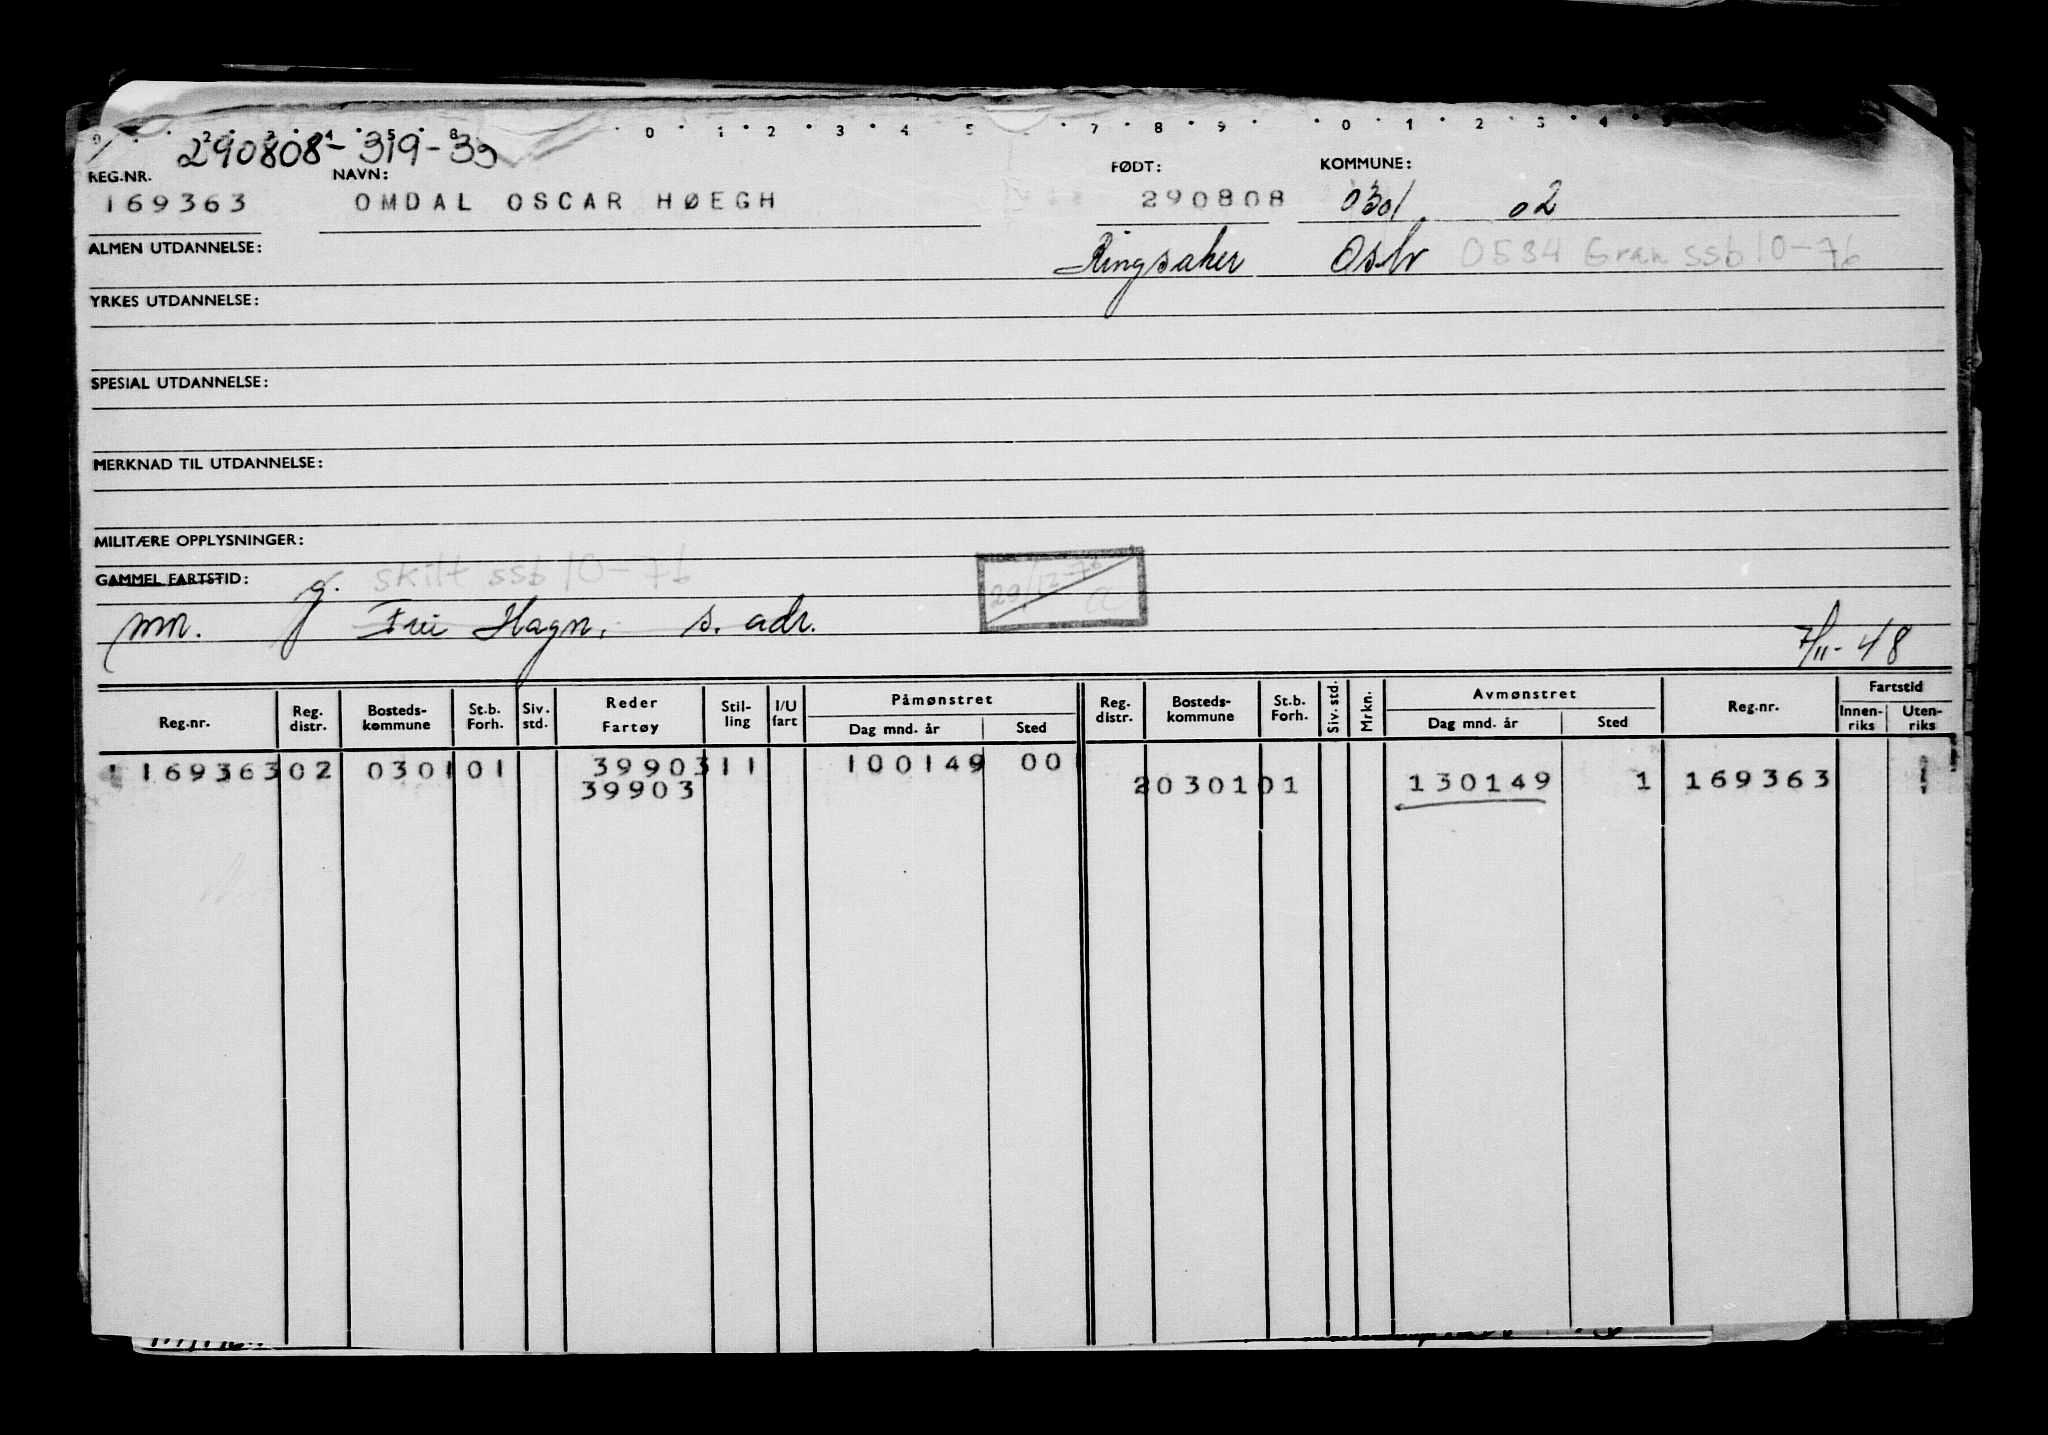 0 . 1 . 2 . 3 . 4 . 5 7 . 8 . 9 . . 0 . 1 . 2 . 3 . 4 .
290808-319-33
REG.NR. NAVN: FØDT: KOMMUNE:
169363 OMDAL OSCAR HØEGH 290808 0301 02
ALMEN UTDANNELSE: Ringsaker Oslo 0534 Gran ssb 10-76
YRKES UTDANNELSE:
SPESIAL UTDANNELSE:
MERKNAD TIL UTDANNELSE:
MILITÆRE OPPLYSNINGER:
GAMMEL FARTSTID: g. skilt ssb 10-76 29/12-76
mr. Frei Hagn. s. adr. 7/11-48
Reg.nr. Reg. distr. Bosteds-kommune St.b. Forh. Siv. std. Reder Fartøy Stil-ling I/U fart Påmønstret Dag mnd. år Sted Reg. distr. Bosteds-kommune St.b. Forh. Siv. std. Mrkn. Avmønstret Dag mnd. år Sted Reg.nr. Fartstid Innen-riks Uten-riks
169363 02 0301 01 39903 11 100149 00
39903 2 0301 01 130149 1 169363